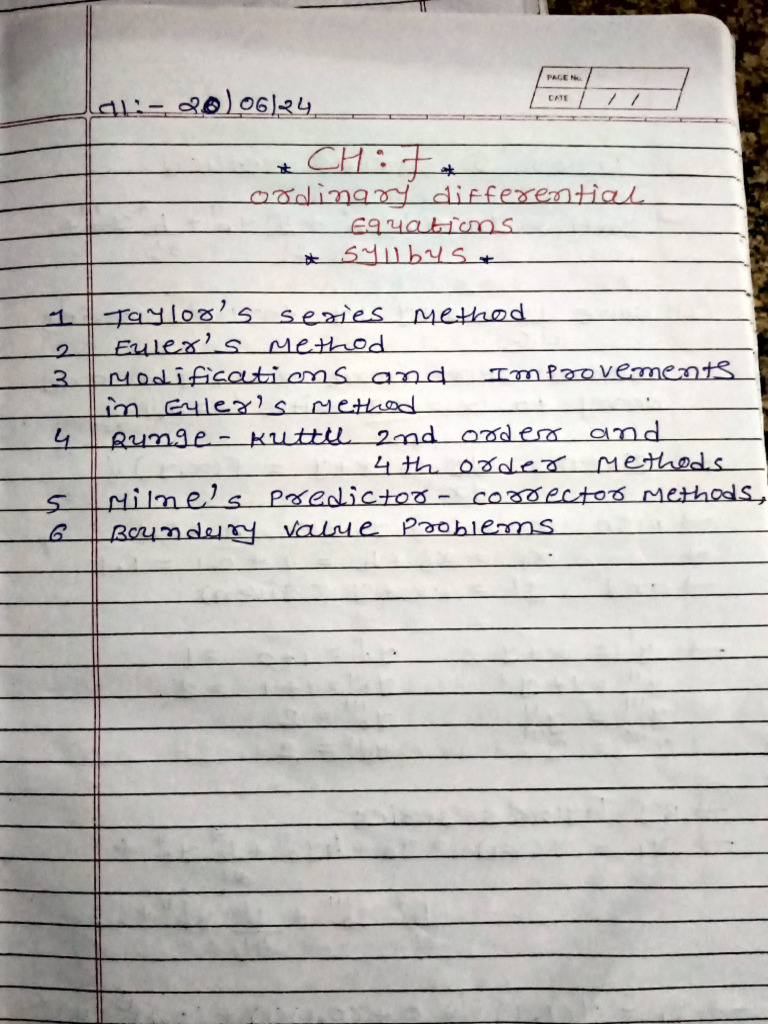 તા:- 20/06/24
PAGE No.
DATE / /
* CH: 7 *
ordinary differential
Equations
* syllbus *
1 Taylor's series Method
2 Euler's Method
3 Modifications and Improvements
in Euler's Method
4 Runge - Kuttu 2nd order and
4th order Methods
5 Milne's Predictor - corrector Methods,
6 Boundary value Problems